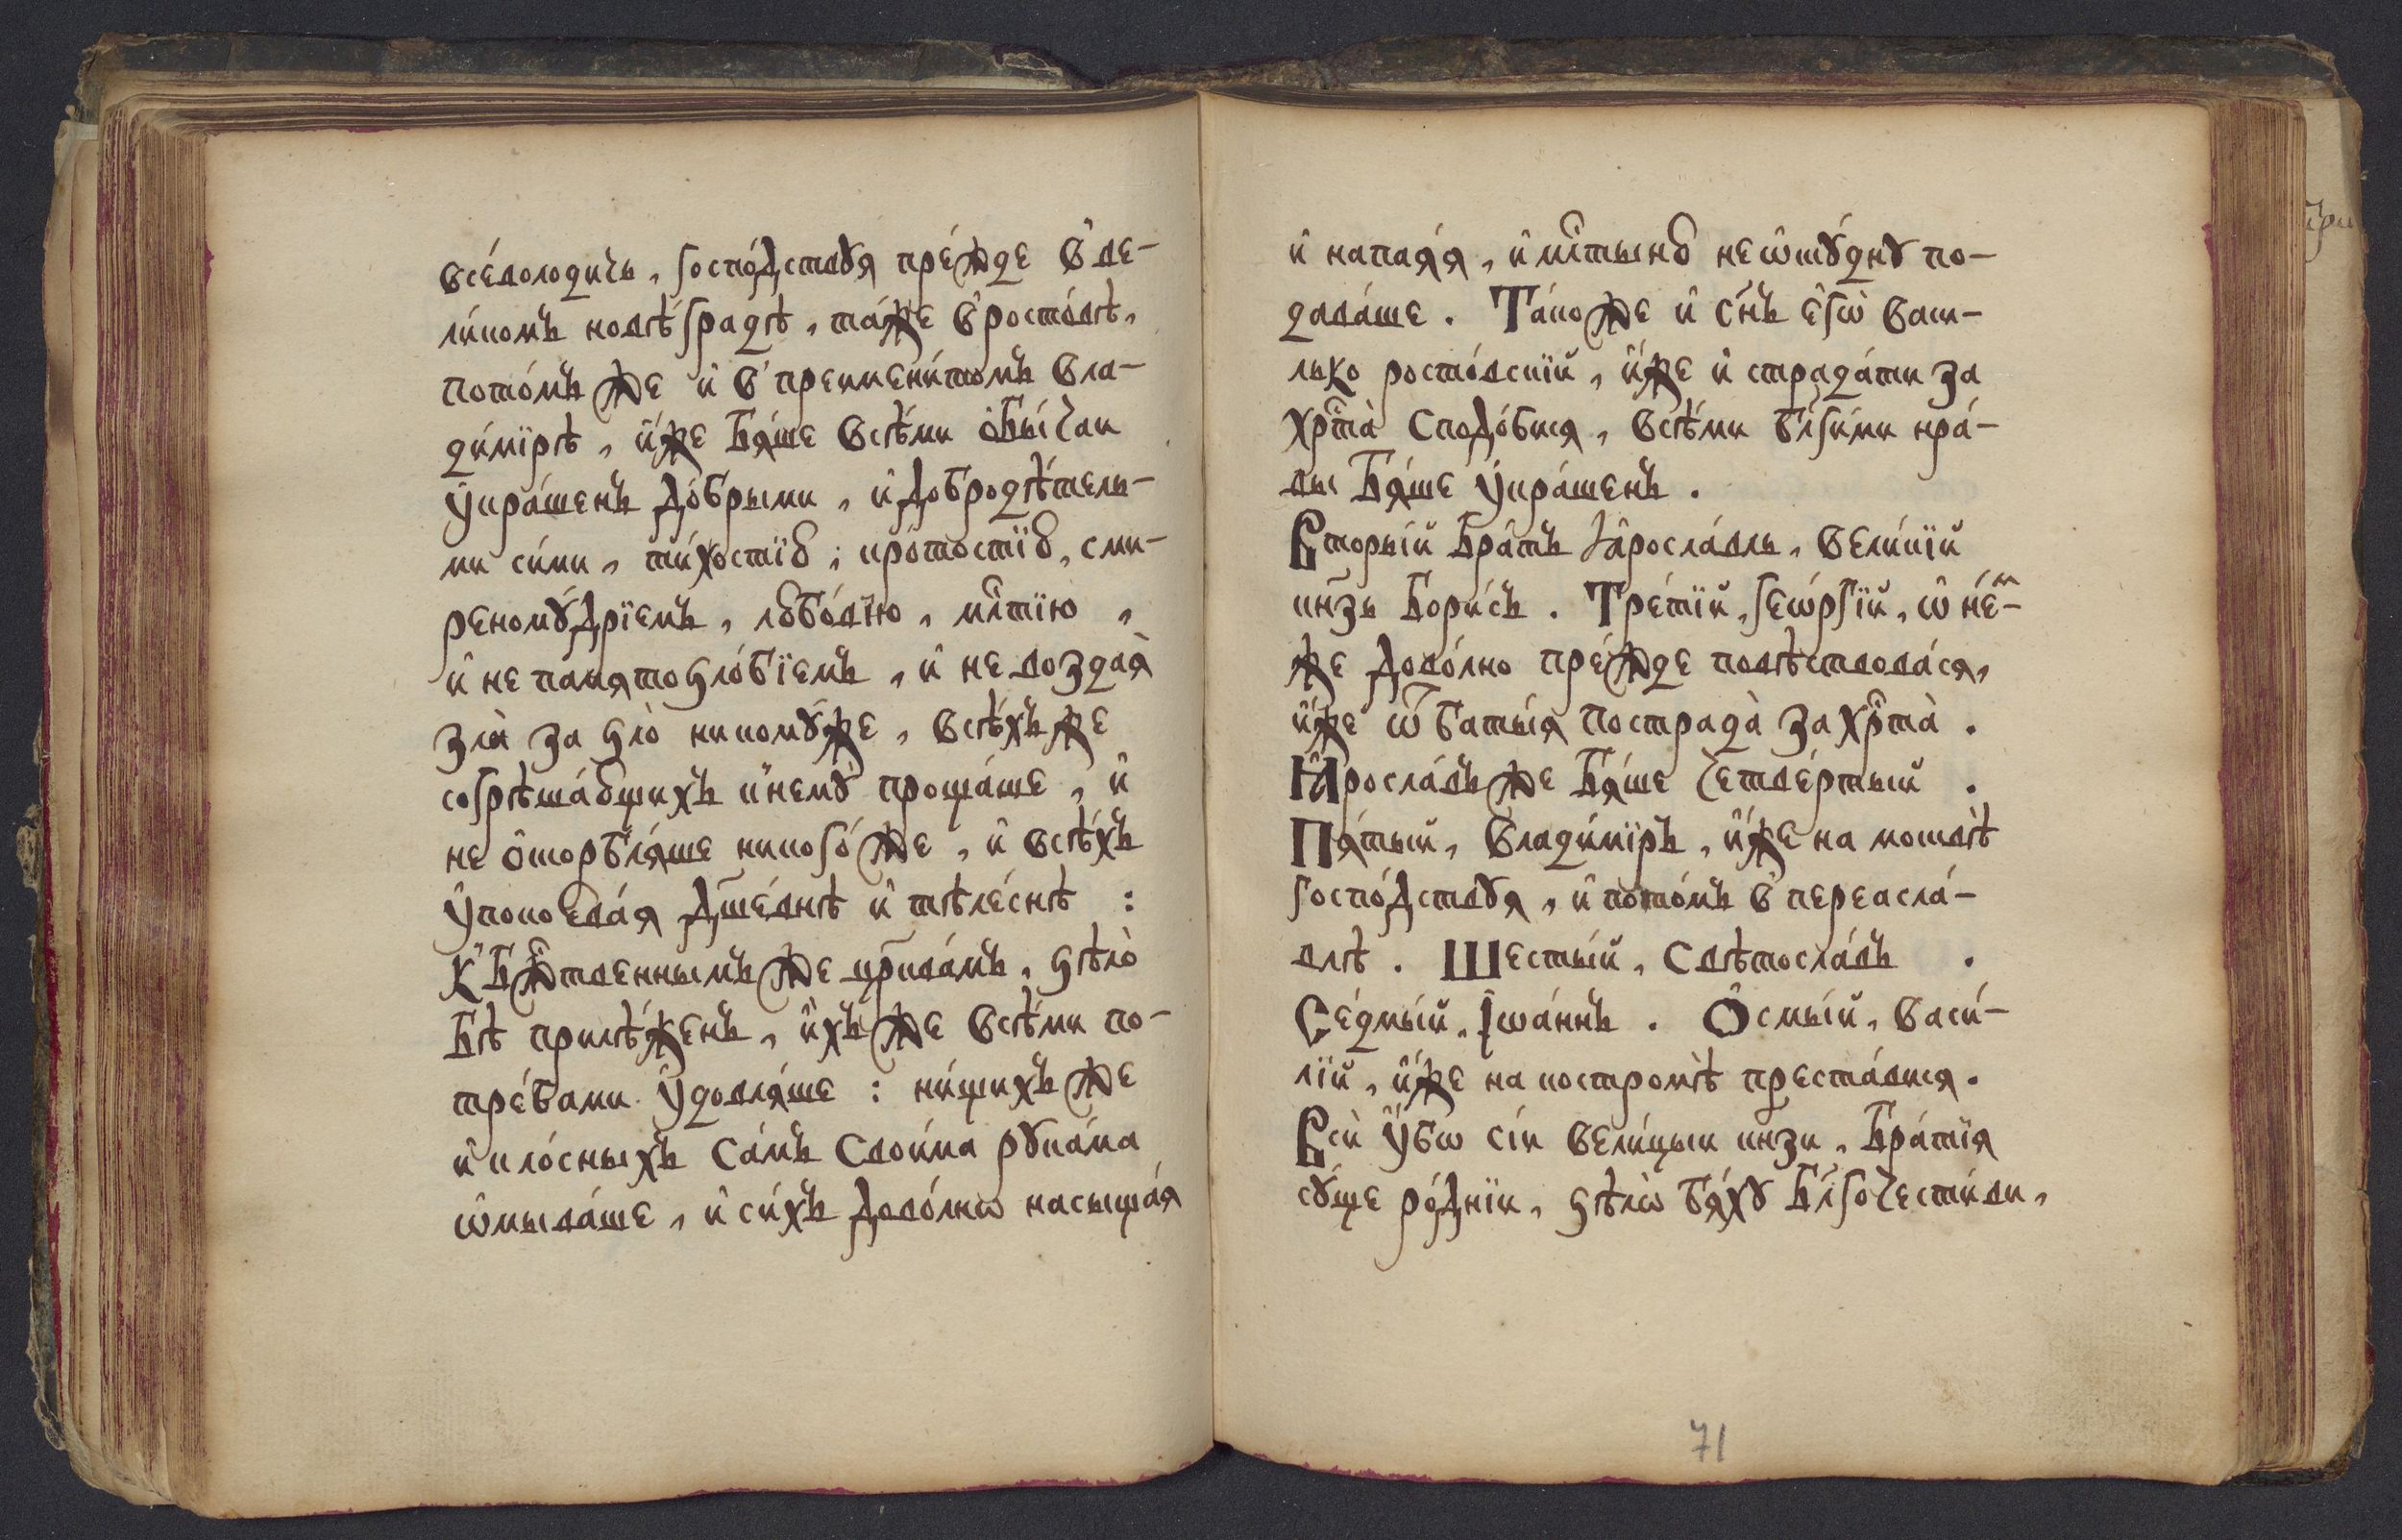 всѐволодичь, господствꙋя пре́жде в̾ ве-
ли́комъ новѣ́градѣ, та́же в̾ росто́вѣ,
пото́мъ же и҆ в̾ преимени́томъ вла-
ди́мїрѣ, и҆́же бя́ше всѣ́ми ѻ҆бы́чаи
у҆кра́шенъ до́брыми, и҆ добродѣ́тель-
ми си́ми, ти́хостїю, кро́тостїю, сми-
реномꙋ́дрїемъ, любо́вїю, млⷭ҇тїю,
и҆ не памятоѕло́бїемъ, и҆ не воздая̀
зла̀ за ѕло̀ никомꙋ́же, всѣ́хъ же
согрѣша́ющихъ к̾немꙋ̀ проща́ше, и҆
не ѻ҆скорбля́ше никого́же, и҆ всѣ́хъ
у҆покоева́я дш҃е́внѣ и҆ тѣле́снѣ :
К̾ бжⷭ҇твеннымъ же цр҃ква́мъ, ѕѣлѡ̀
бѣ̀ прилѣ́женъ, и҆́хъ же всѣ́ми по-
тре́бами у҆довля́ше : ни́щихъ же
и҆ кло́сныхъ са́мъ свои́ма рꙋка́ма
ѡ҆мыва́ше, и҆ си́хъ дово́лнѡ насыща́я
и҆ напая́я, и҆ млⷭ҇тыню неѡ҆скꙋ́днꙋ по-
дава́ше. Та́коже и҆ сн҃ъ є҆гѡ̀ васи-
лько росто́вскїй, и҆́же и҆ страда́ти за
хрⷭ҇та̀ сподо́бися, всѣ́ми бл҃ги́ми нра́-
вы бя́ше у҆кра́шенъ.
Вторы́й бра́тъ Ꙗ҆росла́вль, вели́кїй
кнзь бори́съ. Тре́тїй, гео́ргїй, ѡ҆ не́м-
же дово́лно пре́жде повѣствова́ся,
и҆́же ѿ баты́я пострада̀ за хрⷭ҇та̀.
Ꙗ҆росла́въ же бя́ше четве́ртый.
Пя́тый, влади́мїръ, и҆́же на москвѣ̀
госпо́дствꙋя, и҆ пото́мъ в̾ переасла́-
влѣ. Шесты́й, святосла́въ.
Седмы́й, І҆ѡа́ннъ. Ѻ҆смы́й, васи́-
лїй, и҆́же на костромѣ̀ преста́вися.
Всѝ у҆́бѡ сі́и вели́цыи кнзи, бра́тїя
сꙋ́ще ро́днїи, ѕѣлѡ̀ бя́хꙋ бл҃гочести́ви,
71